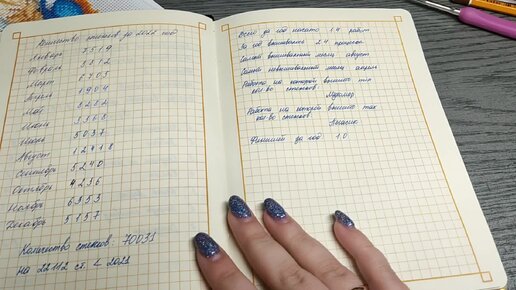 Количество стежков за 2022 год
Январь 7519
Февраль 5372
Март 6703
Апрель 1904
Май 8282
Июнь 3368
Июль 5037
Август 12418
Сентябрь 5240
Октябрь 4236
Ноябрь 6353
Декабрь 5157
Количество стежков: 70031
На 22112 ст. < 2021
Всего за год начато 14 работ
За год вышивались 24 процесса
Самый вышивальный месяц август
Самый невышивальный месяц апрель
Работа на которой вышито max
кол-во стежков
Работа на которой вышито так
кол-во стежков
Финишей за год 10